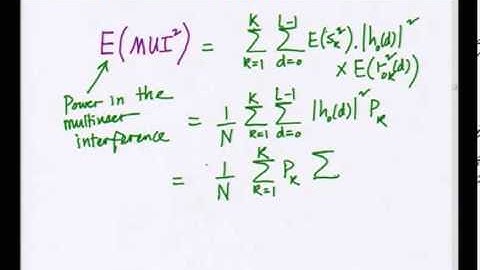 E(MUI²) = K Σ k=1 L-1 Σ d=0 E(s_k²).|h_0(d)|²
× E(r²_0k(d))
Power in the
multiuser
interference
= 1/N K Σ k=1 L-1 Σ d=0 |h_0(d)|² P_k
= 1/N K Σ k=1 P_k Σ